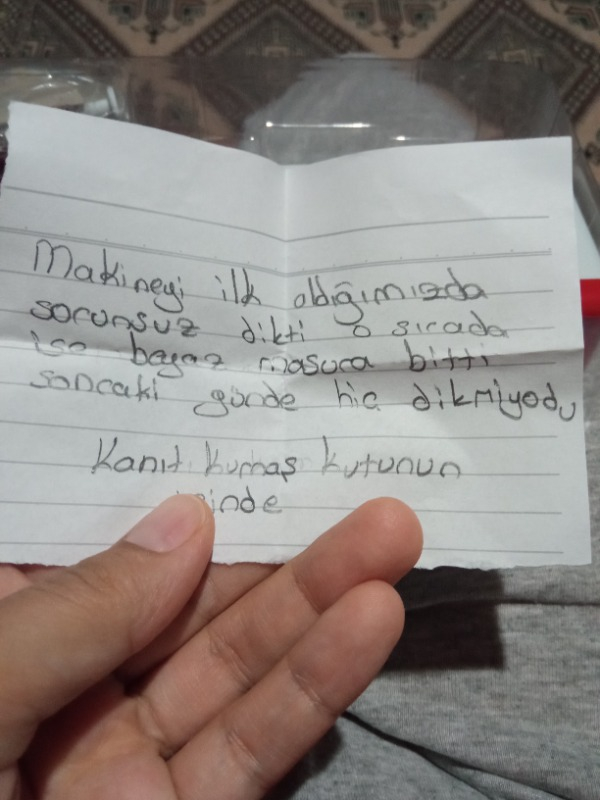 Makineyi ilk aldığımızda
sorunsuz dikti o sırada
ise beyaz masura bitti
sonraki günde hiç dikmiyodu
Kanıt kumaş kutunun
içinde